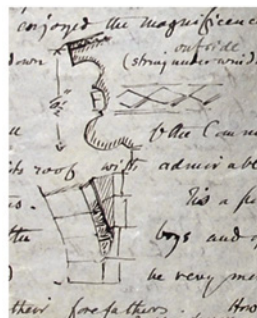 enjoyed the magnificence
outside
down (string under wind).
& the Comm
its roof with admirabl
as. Tis a
the boys and
be very me
their forefathers. How